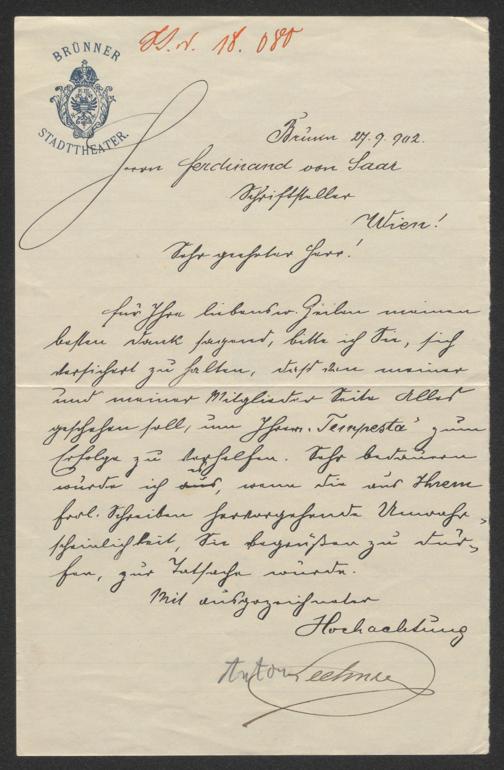 BRÜNNER
STADTTHEATER.
18.080
Brünn 27.9.902.
Herrn Ferdinand von Saar
Schriftsteller
Wien!
Sehr geehrter Herr!
Für Ihre liebensw. Zeilen meinen
besten Dank sagend, bitte ich Sie, sich
versichert zu halten, daß von meiner
und meiner Mitglieder Seite Alles
geschehen soll, um Ihrem „Tempesta" zum
Erfolge zu verhelfen. Sehr bedauern
würde ich es, wenn die aus Ihrem
frdl. Schreiben hervorgehende Unwahr-
scheinlichkeit, Sie begrüßen zu dür-
fen, zur Tatsache würde.
Mit ausgezeichneter
Hochachtung
Anton Lechner